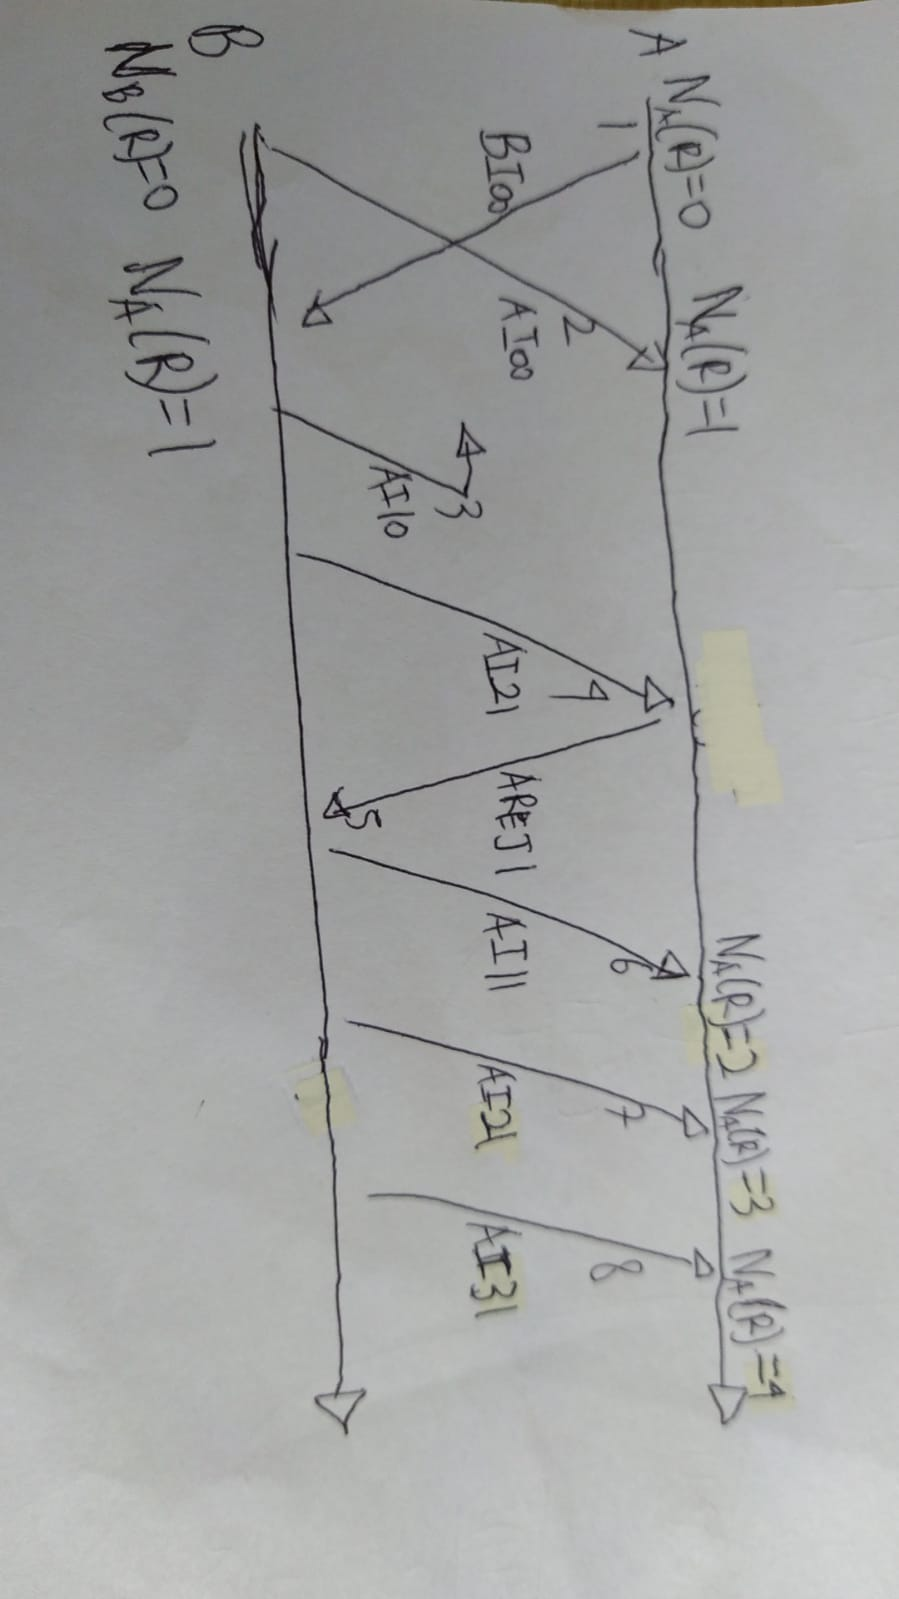 A N_A(R)=0 N_A(R)=1 N_A(R)=2 N_A(R)=3 N_A(R)=4
1 2 3 4 5 6 7 8
BI00 AI00 AI10 AI21 AREJ1 AI11 AI21 AI31
B
N_B(R)=0 N_A(R)=1